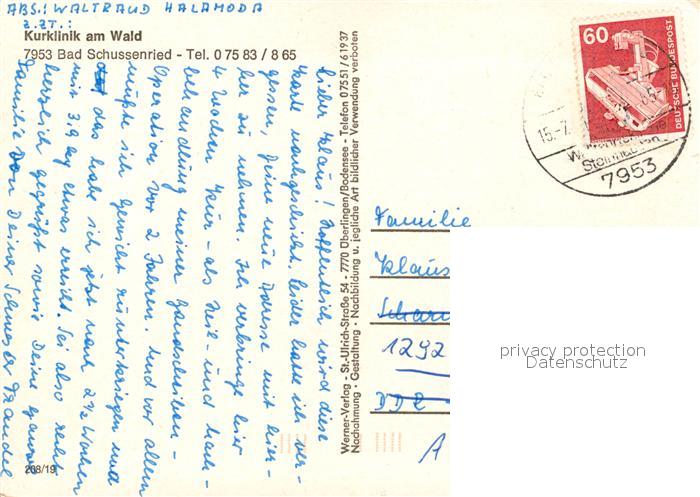 ABS.: WALTRAUD HALAMODA
Z.ZT.:
Kurklinik am Wald
7953 Bad Schussenried - Tel. 0 75 83 / 8 65
Lieber Klaus! Hoffentlich wird diese
Karte nachgeschickt. Leider hatte ich ver-
gessen, Deine neue Adresse mit hier-
her zu nehmen. Ich verbringe hier
4 Wochen Kur - als Heil- und Nach-
behandlung meiner Bandscheiben-
Operation vor 2 Jahren. Und vor allem
mußte ich Gewicht runterkriegen und
das habe ich jetzt nach 2 1/2 Wochen
mit 3,9 kg etwas erreicht. Sei also recht
herzlich gegrüßt sowie Deine ganze
Familie von Deiner Schwester Traudel
268/19
Werner-Verlag - St.-Ulrich-Straße 54 - 7770 Überlingen/Bodensee - Telefon 07551/61937
Nachahmung - Gestaltung - Nachbildung u. jegliche Art bildlicher Verwendung verboten
60
DEUTSCHE BUNDESPOST
15.-7.
7953
Familie
Klaus
1292
DDR
A
privacy protection
Datenschutz